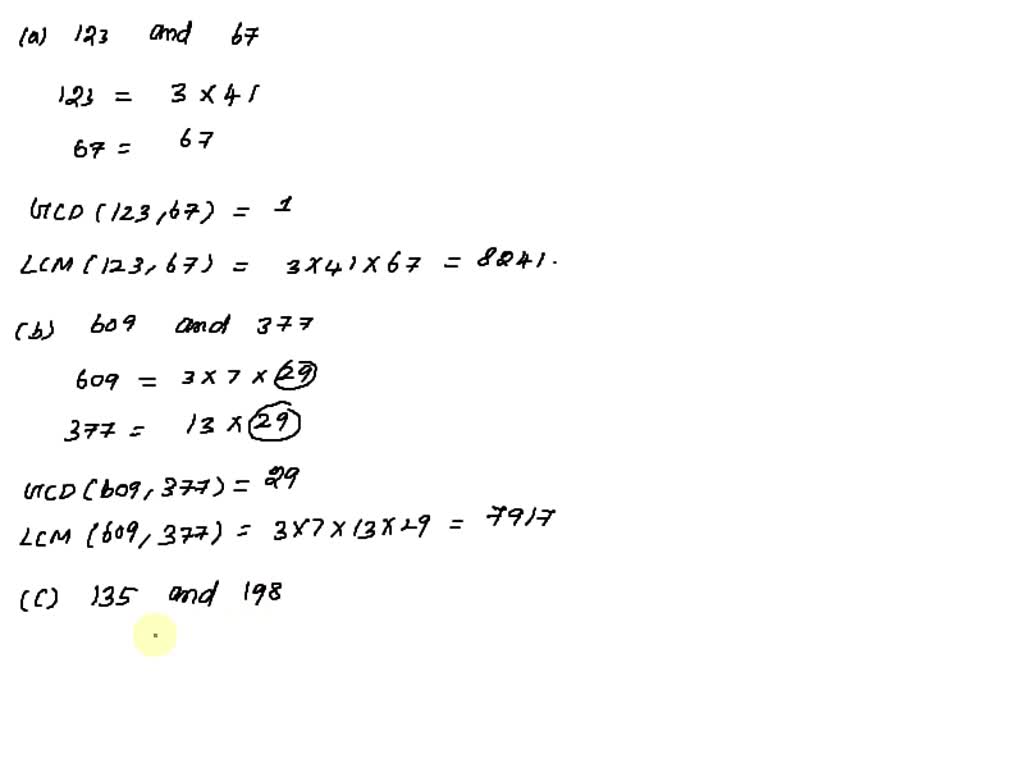 (a) 123 and 67
123 = 3 × 41
67 = 67
GCD (123,67) = 1
LCM (123, 67) = 3×41×67 = 8241.
(b) 609 and 377
609 = 3 × 7 × 29
377 = 13 × 29
GCD (609, 377) = 29
LCM (609, 377) = 3×7×13×29 = 7917
(C) 135 and 198